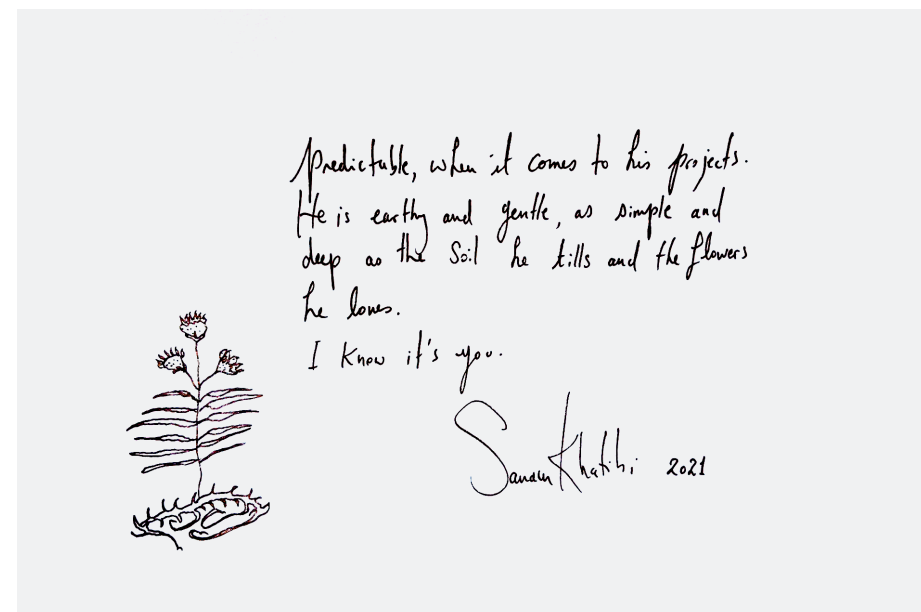 predictable, when it comes to his projects.
He is earthy and gentle, as simple and
deep as the Soil he tills and the flowers
he loves.
I know it's you.
Khatibi 2021